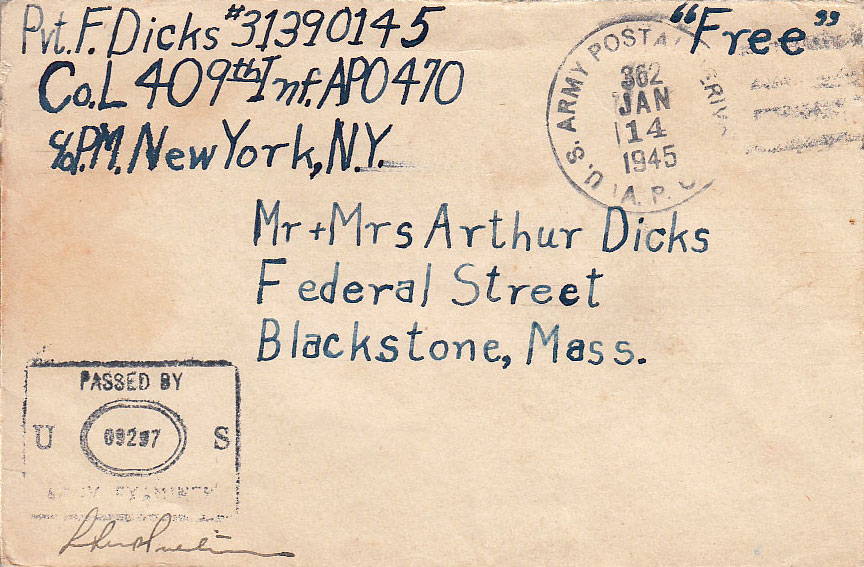 Pvt. F. Dicks #31390145
Co. L 409th Inf. APO 470
c/o P.M. New York, N.Y.
"Free"
U.S. ARMY POSTAL SERVICE
A.P.O.
362
JAN
14
1945
Mr + Mrs Arthur Dicks
Federal Street
Blackstone, Mass.
PASSED BY
U 09297 S
ARMY EXAMINER